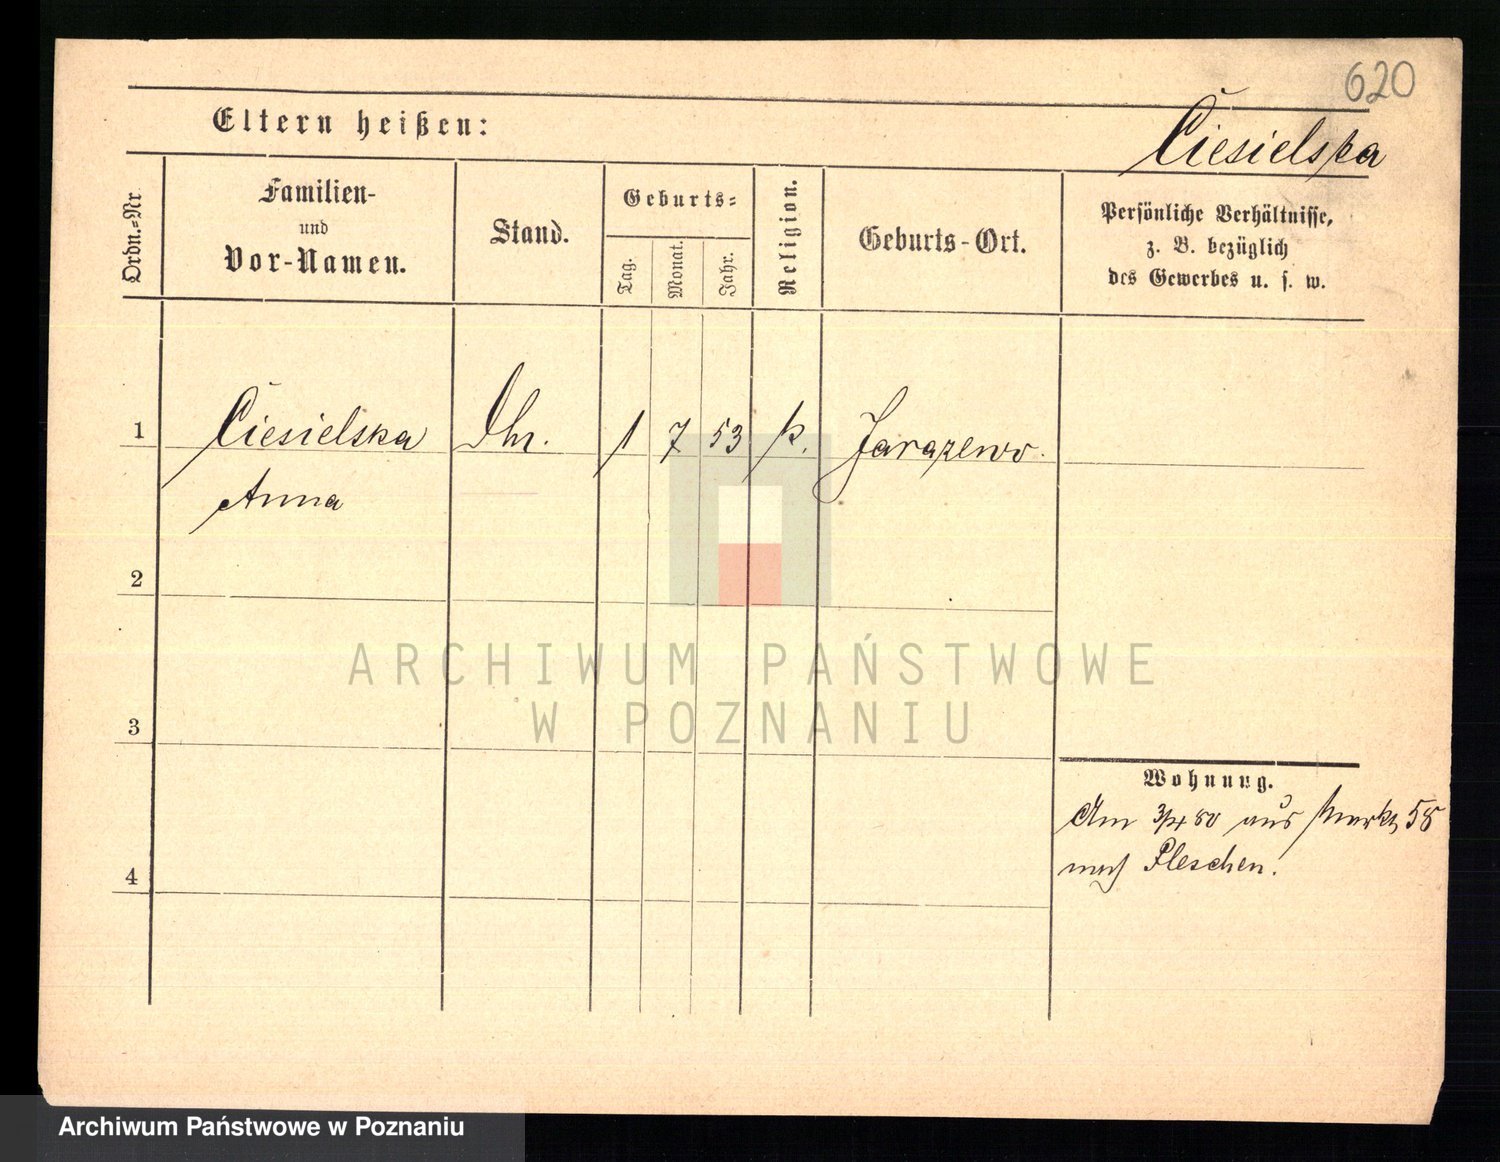 620
Eltern heißen:
Ciesielska
Ordn.=Nr
Familien-
und
Vor-Namen.
Stand.
Geburts=
Tag.
Monat.
Jahr.
Religion.
Geburts-Ort.
Persönliche Verhältnisse,
z. B. bezüglich
des Gewerbes u. s. w.
1
Ciesielska
1 7 53 k. Jaraczewo.
Anna
2
ARCHIWUM PAŃSTWOWE
W POZNANIU
3
Wohnung.
Am 3/4 80 aus Markt 58
nach Pleschen.
4
Archiwum Państwowe w Poznaniu